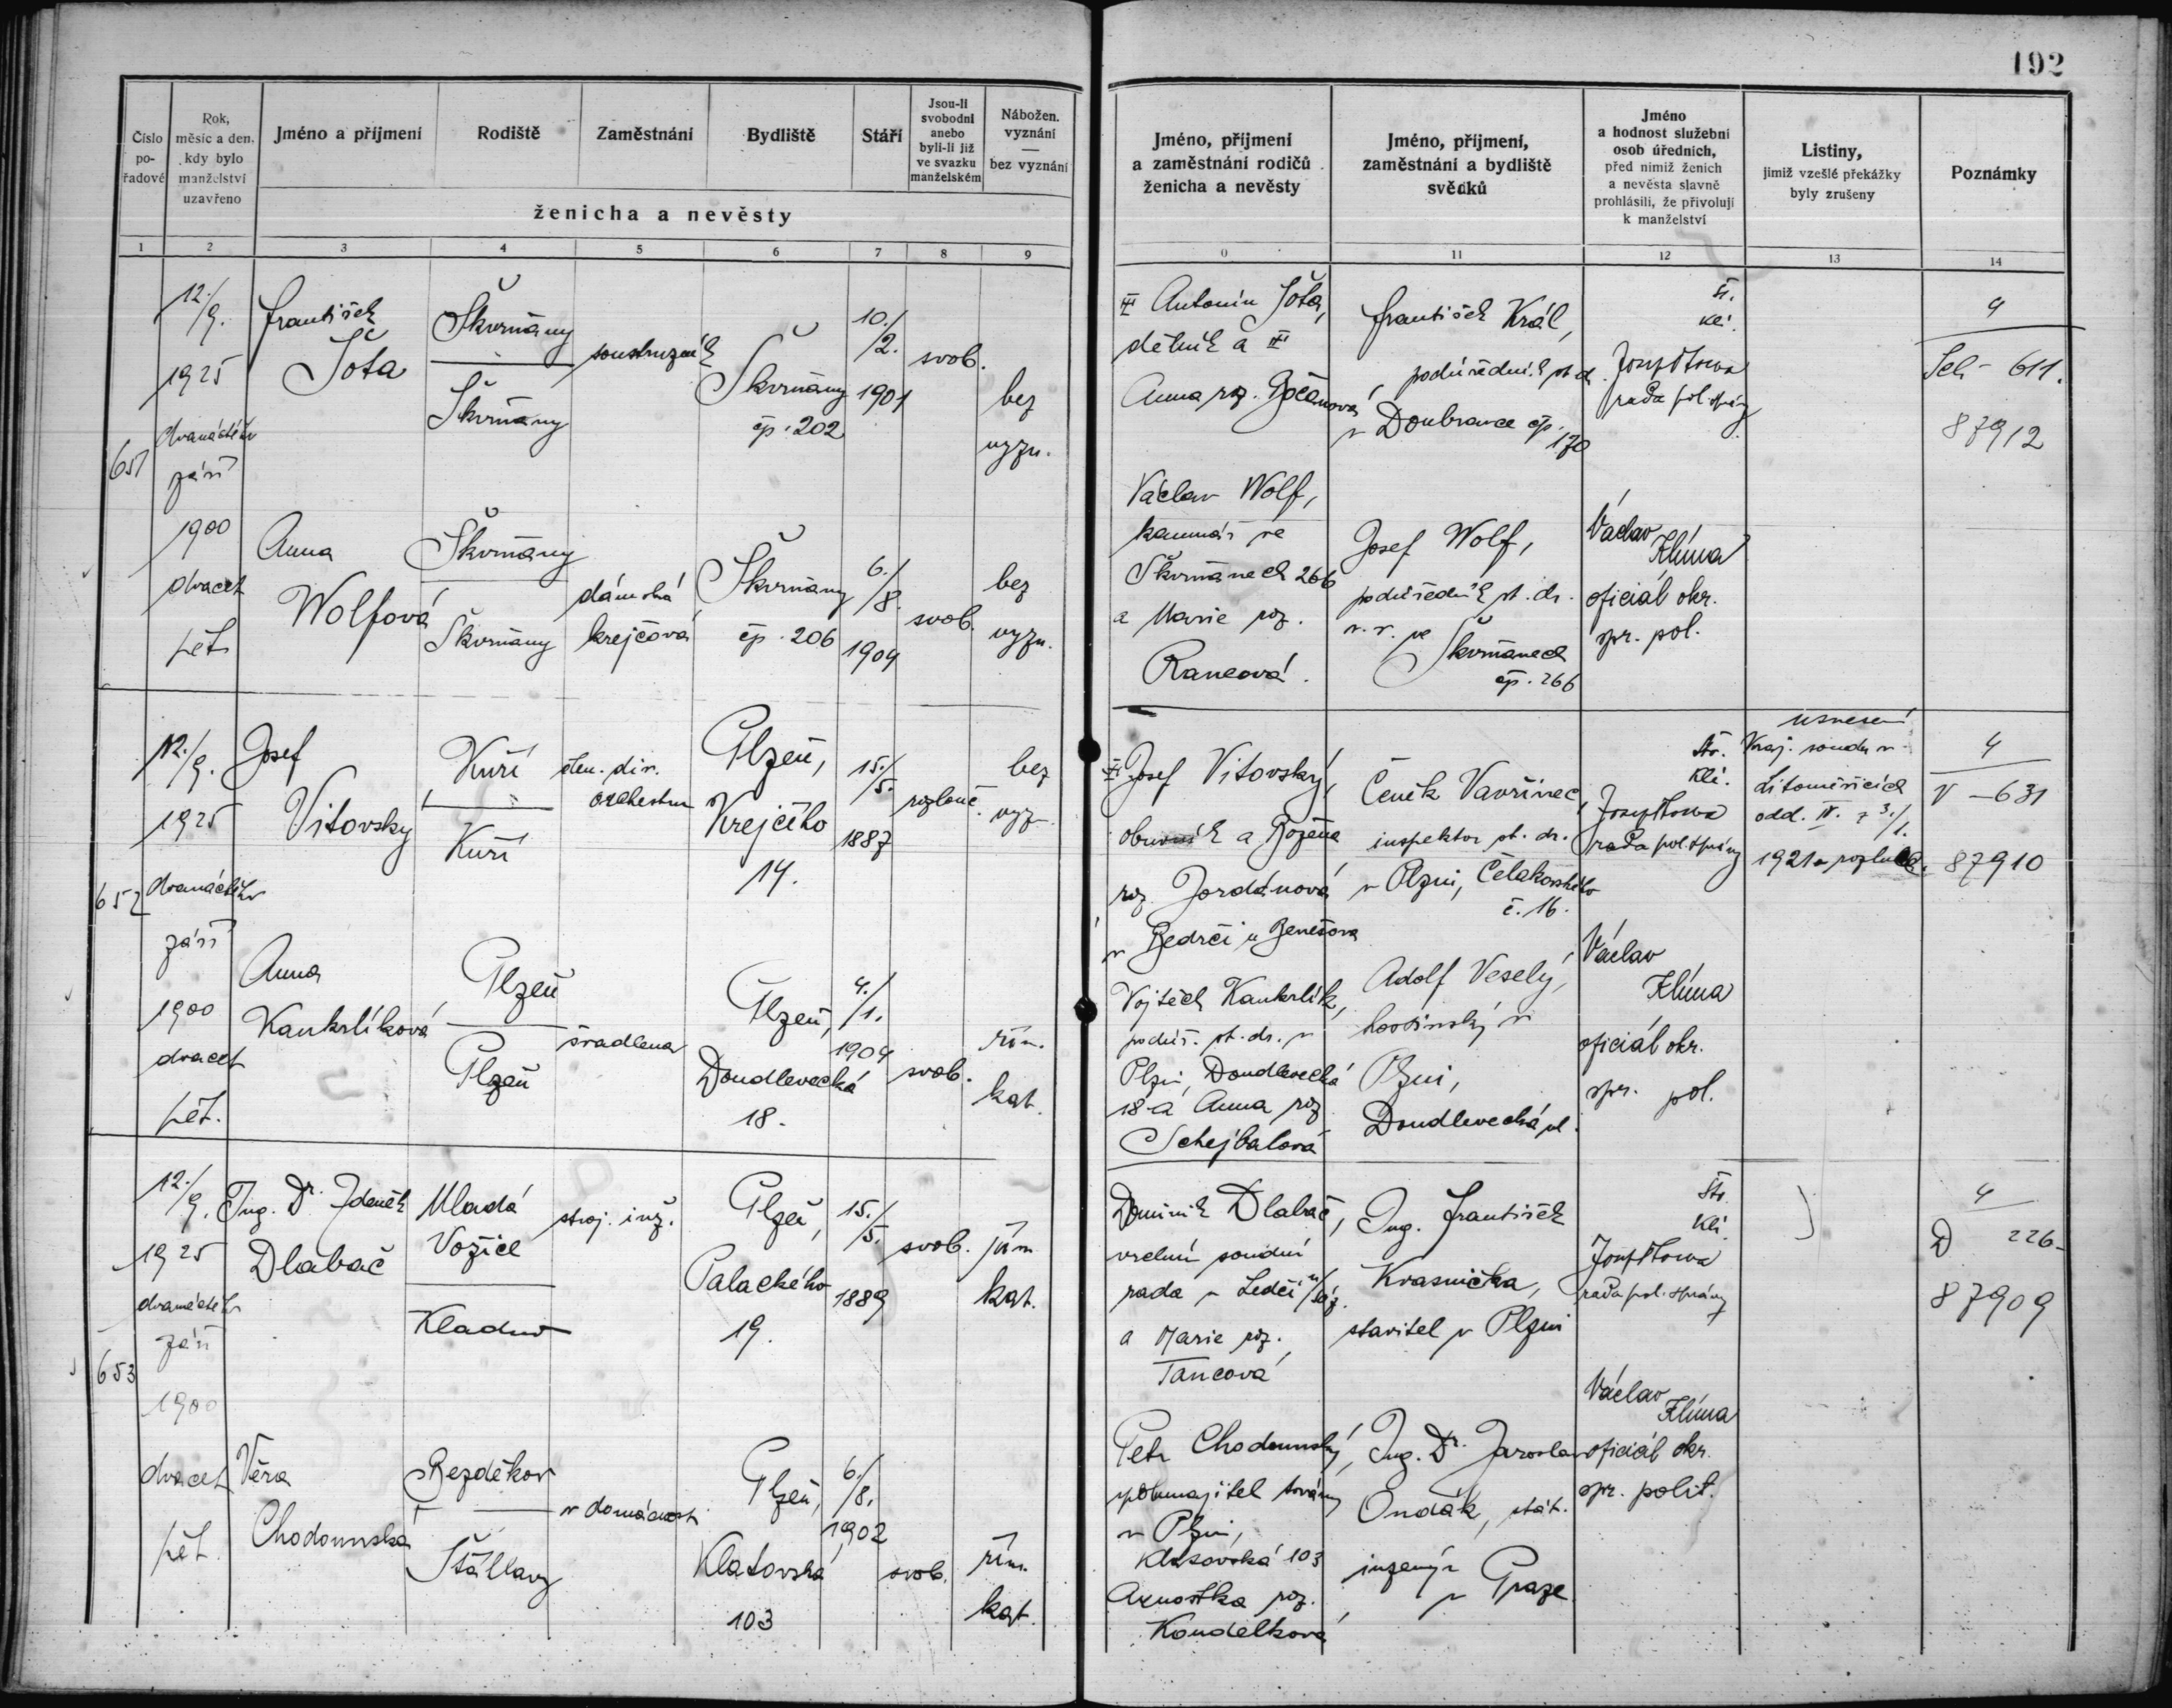 192
Číslo po-řadové
Rok, měsíc a den, kdy bylo manželství uzavřeno
Jméno a příjmení
Rodiště
Zaměstnání
Bydliště
Stáří
Jsou-li svobodni anebo byli-li již ve svazku manželském
Nábožen. vyznání — bez vyznání
ženicha a nevěsty
Jméno, příjmení a zaměstnání rodičů ženicha a nevěsty
Jméno, příjmení, zaměstnání a bydliště svědků
Jméno a hodnost služební osob úředních, před nimiž ženich a nevěsta slavně prohlásili, že přivolují k manželství
Listiny, jimiž vzešlé překážky byly zrušeny
Poznámky
1 2 3 4 5 6 7 8 9 0 11 12 13 14
651
12./9.
1925
dvanáctého
září
1900
dvacet
pět
František
Šota
Škvrňany
Škvrňany
soustružník
Škvrňany
čp. 202
10./2.
1901
svob.
bez
vyzn.
Antonín Šota,
dělník a
Anna roz.
František Král,
podúředník st. d.
v Doubravce čp.
170
Kli.
rada pol. správy
4
611.
87912
Anna
Wolfová
Škvrňany
Škvrňany
dámská
krejčová
Škvrňany
čp. 206
6./8.
1904
svob.
bez
vyzn.
Václav Wolf,
ve
Škvrňanech 266
a Marie roz.
Rancová.
Josef Wolf,
podúředník st. dr.
v. v. ve
Škvrňanech
čp. 266
Václav
Klíma
oficiál okr.
spr. pol.
652
12./9.
1925
dvanáctého
září
1900
dvacet
pět.
Josef
Vitovsky
Kuří
Kuří
člen. div.
orchestru
Plzeň,
Krejčího
14.
15./5.
1887
rozlouč.
bez
vyz.
Josef Vitovský,
obuvník a Božena
roz. Jordánová
v Bedrči u Benešova
Čeněk Vavřinec,
inspektor st. dr.
v Plzni, Čelakovského
č. 16.
Kli.
rada pol. správy
usnesení
Kraj. soudu v
Litoměřicích
odd. II. z 3./1.
1921 o rozluce.
4
V – 631
87910
Anna
Kankrlíková
Plzeň
Plzeň
švadlena
Plzeň,
Doudlevecká
18.
4./1.
1904
svob.
řím.
kat.
Vojtěch Kankrlík,
podúř. st. dr. v
Plzni, Doudlevecká
18 a Anna roz.
Schejbalová
Adolf Veselý,
hostinský v
Plzni,
Doudlevecká ul.
Václav
Klíma
oficiál okr.
spr. pol.
653
12./9.
1925
dvanáctého
září
1900
dvacet
pět.
Ing. Dr. Zdeněk
Dlabač
Mladá
Vožice
Kladno
stroj. inž.
Plzeň,
Palackého
19.
15./5.
1889
svob.
řím.
kat.
Dominik Dlabač,
vrchní soudní
rada v Ledči n/Sáz.
a Marie roz.
Tancová
Ing. František
Krasnička,
stavitel v Plzni
Kli.
rada pol. správy
4
D 226-
87909
Věra
Chodounská
Bezděkov
Šťáhlavy
v domácnosti
Plzeň,
Klatovská
103
6./8.
1902
svob.
řím.
kat.
Petr Chodounský,
spolumajitel továrny
v Plzni,
Klatovská 103
Arnoštka roz.
Koudelková
Ing. Dr. Jaroslav
Ondák, stát.
inženýr
v Praze
Václav
Klíma
oficiál okr.
spr. polit.